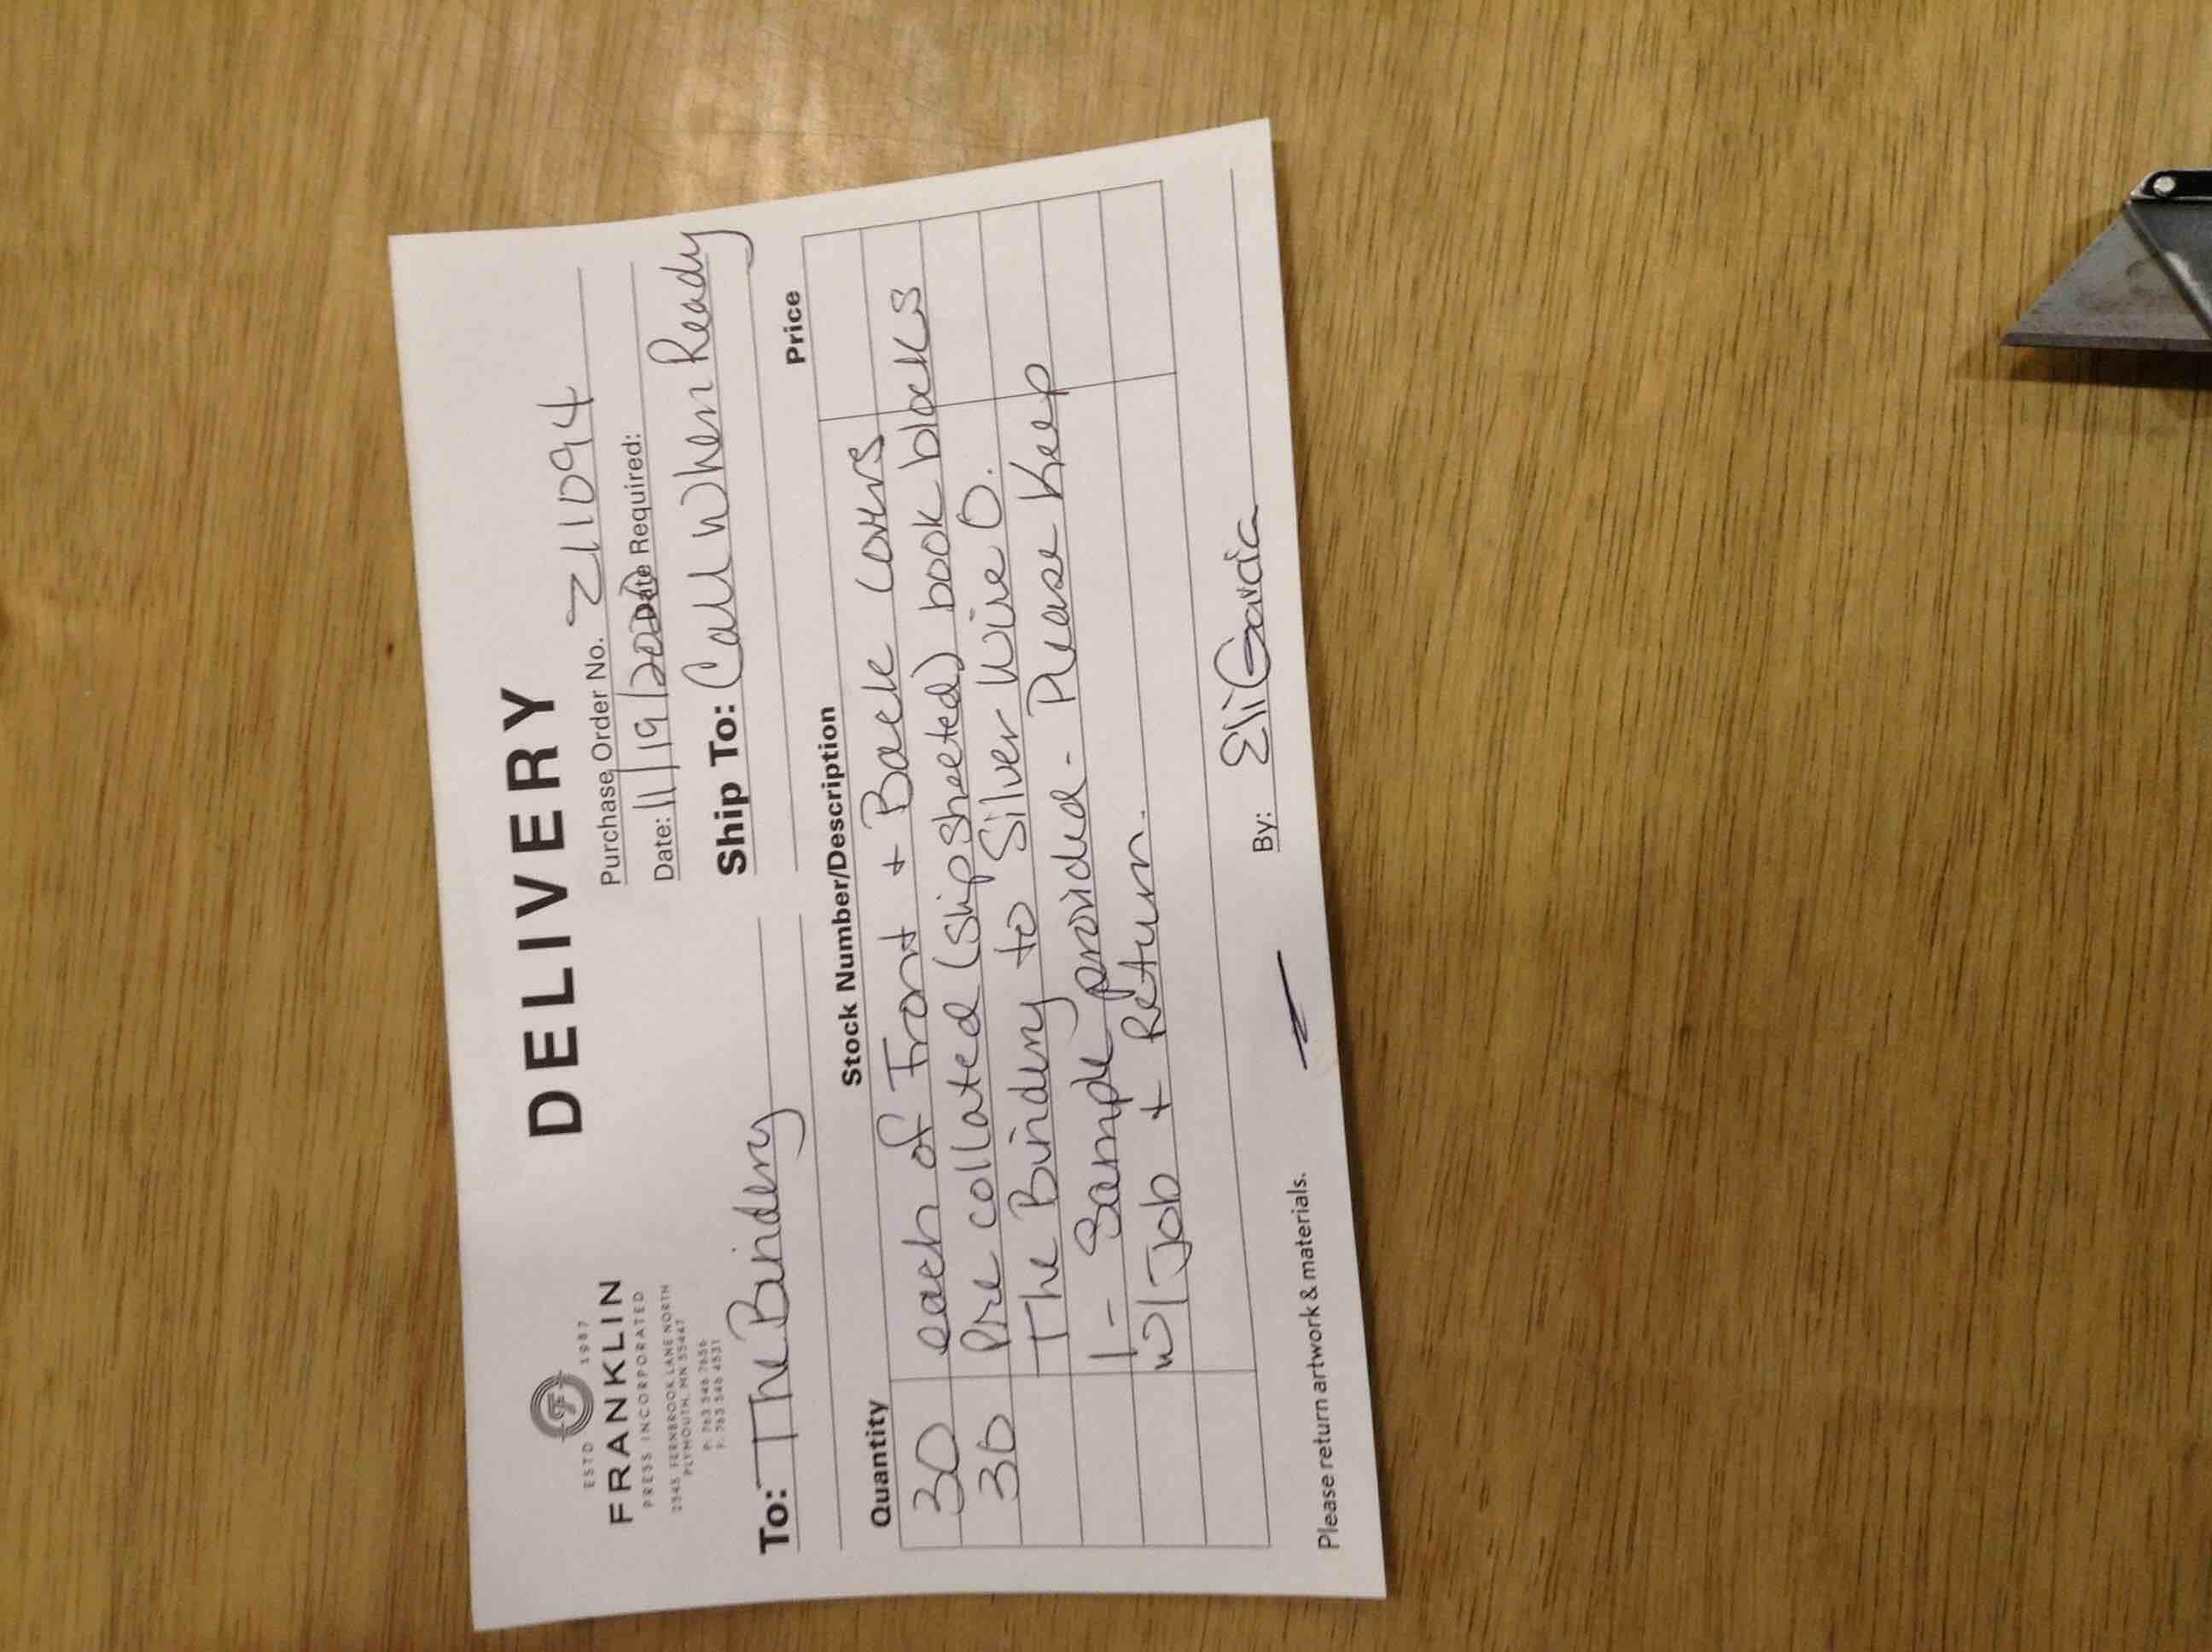 ESTD 1987
FRANKLIN
PRESS INCORPORATED
2345 FERNBROOK LANE NORTH
PLYMOUTH, MN 55447
P: 763 546 7656
F: 763 546 4531
DELIVERY
Purchase Order No. 211094
Date: 11/19/2020 Date Required:
To: The Bindery
Ship To: Call When Ready
Quantity Stock Number/Description Price
30 each of Front + Back covers
30 Pre collated (slip sheeted) book blocks
The Bindery to Silver Wire O.
1- Sample provided - Please Keep
w/ Job + Return.
Please return artwork & materials. By: Eli Garcia